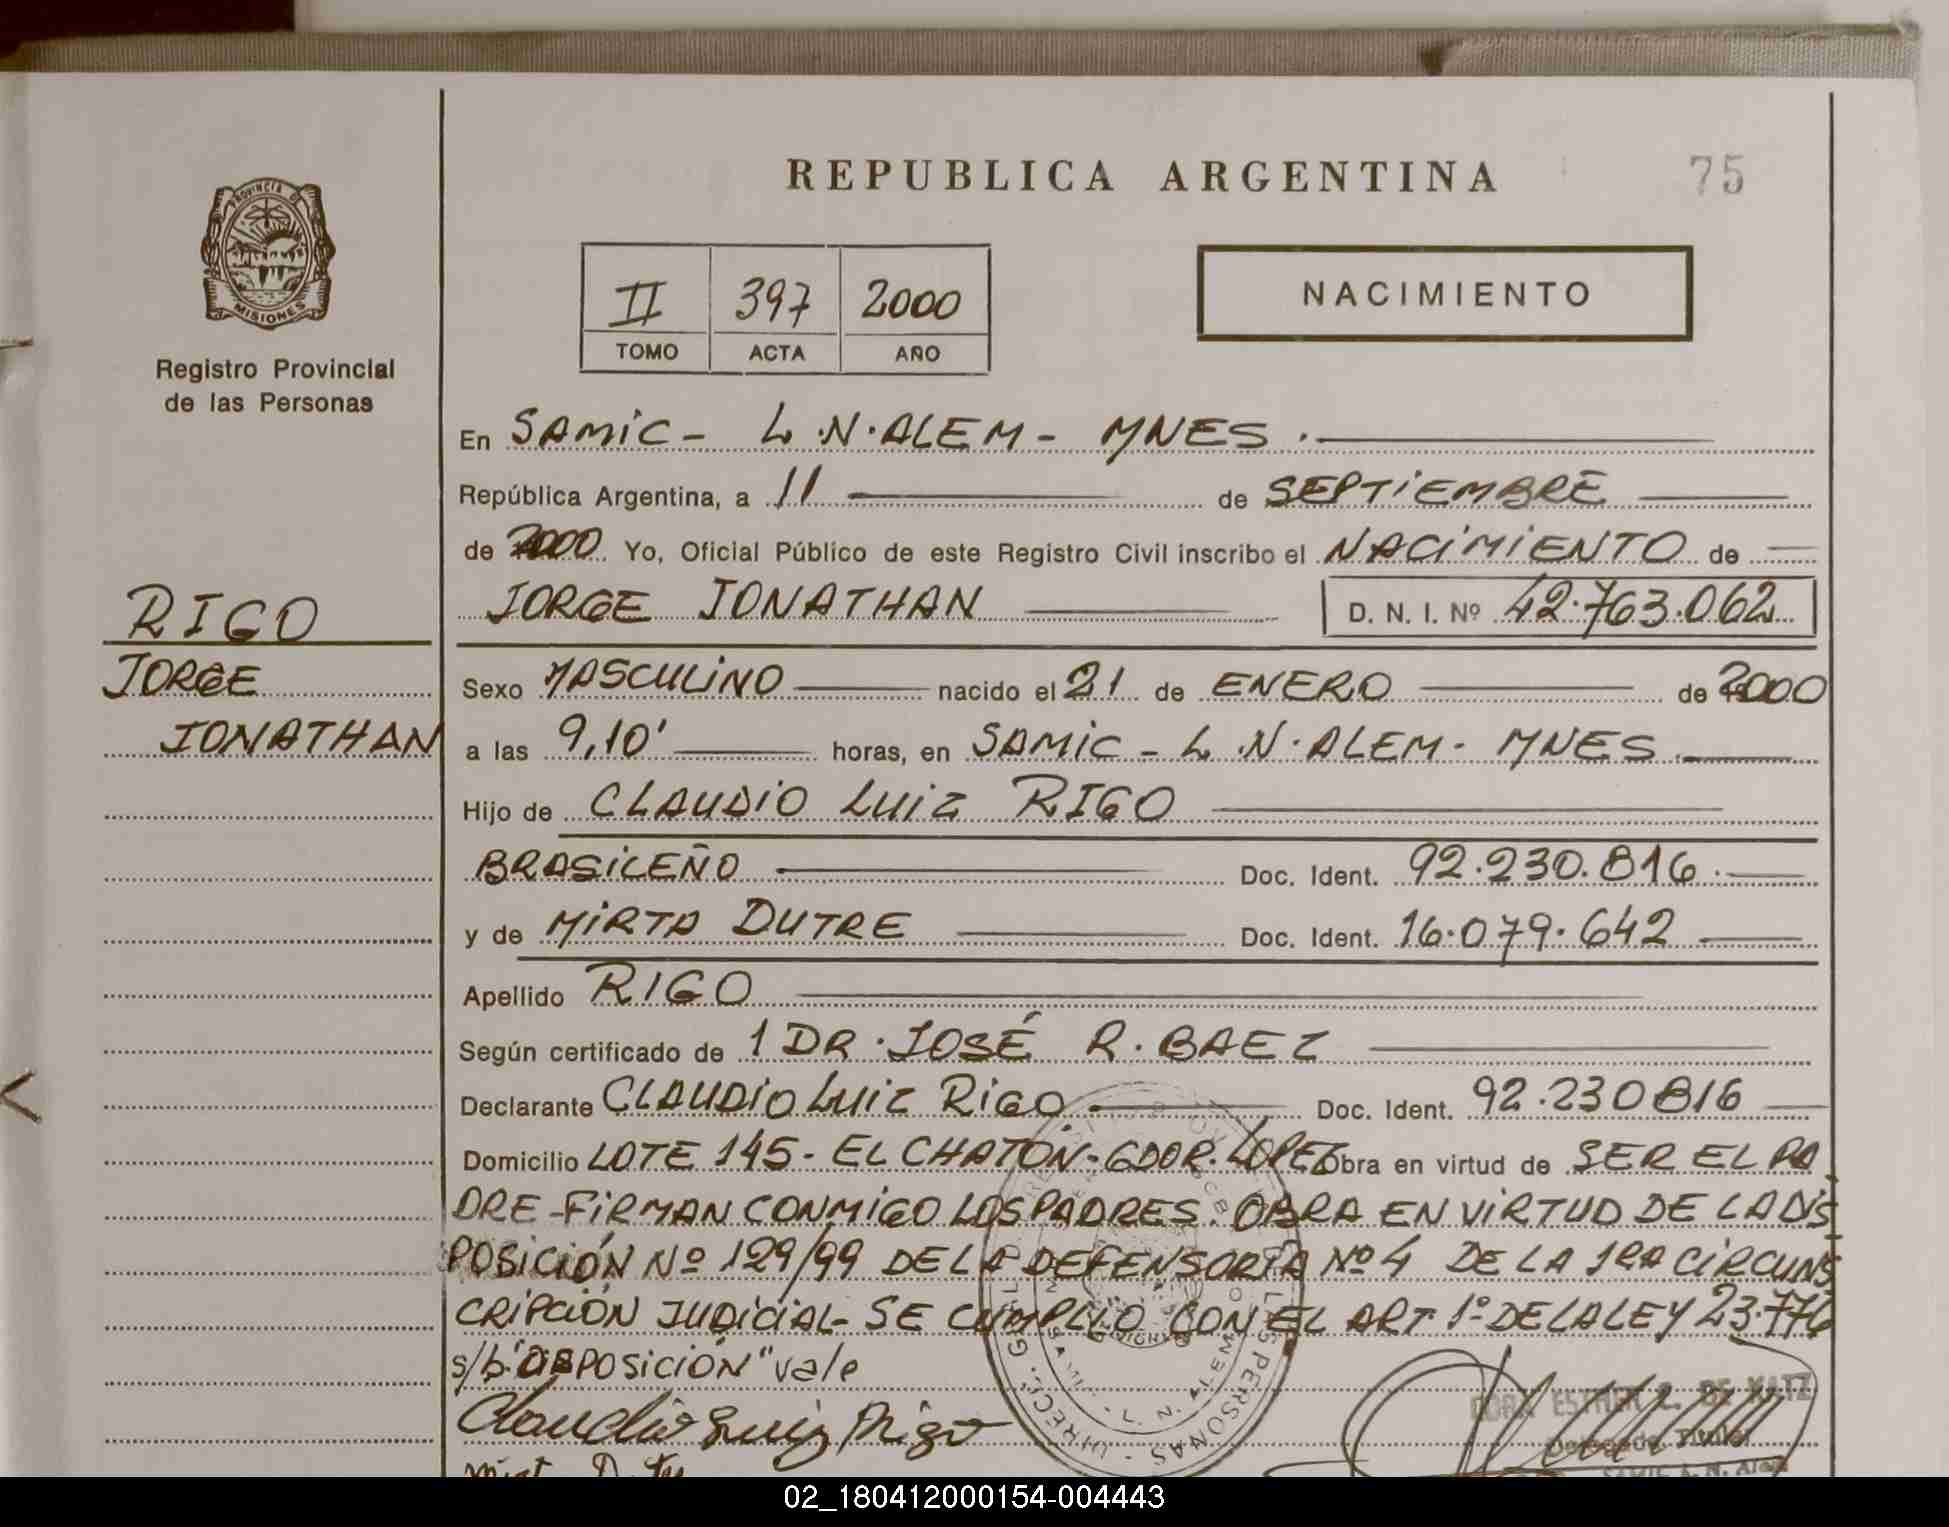 REPUBLICA ARGENTINA
75
PROVINCIA DE
MISIONES
Registro Provincial
de las Personas
II 397 2000
TOMO ACTA AÑO
NACIMIENTO
En SAMIC - L.N. ALEM - MNES.
República Argentina, a 11 de SEPTIEMBRE
de 2000 Yo, Oficial Público de este Registro Civil inscribo el NACIMIENTO de
JORGE JONATHAN D. N. I. Nº 42.763.062
RIGO
JORGE
JONATHAN
Sexo MASCULINO nacido el 21 de ENERO de 2000
a las 9,10' horas, en SAMIC - L.N. ALEM - MNES.
Hijo de CLAUDIO LUIZ RIGO
BRASILEÑO Doc. Ident. 92.230.816.
y de MIRTA DUTRE Doc. Ident. 16.079.642
Apellido RIGO
Según certificado de 1 DR. JOSÉ R. BAEZ
Declarante CLAUDIO LUIZ RIGO Doc. Ident. 92.230816
Domicilio LOTE 145 - EL CHATÓN - GDOR. LOPEZ Obra en virtud de SER EL PA
DRE - FIRMAN CONMIGO LOS PADRES. OBRA EN VIRTUD DE LA DIS
POSICIÓN Nº 129/99 DE LA DEFENSORÍA Nº 4 DE LA 1RA CIRCUNS
CRIPCIÓN JUDICIAL - SE CUMPLIO CON EL ART. 1º DE LA LEY 23.776
s/b "DISPOSICIÓN" vale
Claudio Luiz Rigo
ESTHER DE KATZ
Delegada Titular
SAMIC L. N. Alem
02_180412000154-004443